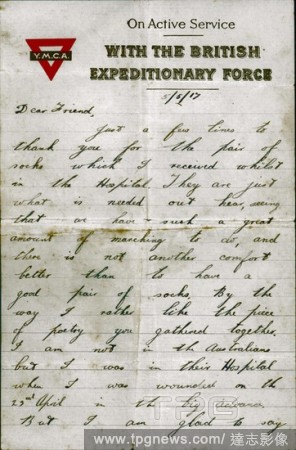 Y.M.C.A.
On Active Service
WITH THE BRITISH
EXPEDITIONARY FORCE
/5/17
Dear Friend,
Just a few lines to
thank you for the pair of
socks which I received whilst
in the Hospital. They are just
what is needed out hear, seeing
that we have such a great
amount of marching to do, and
there is not another comfort
better than to have a
good pair of socks. By the
way I rather like the piece
of poetry you gathered together.
I am not in the Australians
but I was in their Hospital
when I was wounded on the
23rd April in the big advance.
But I am glad to say
www.tpgnews.com/達志影像